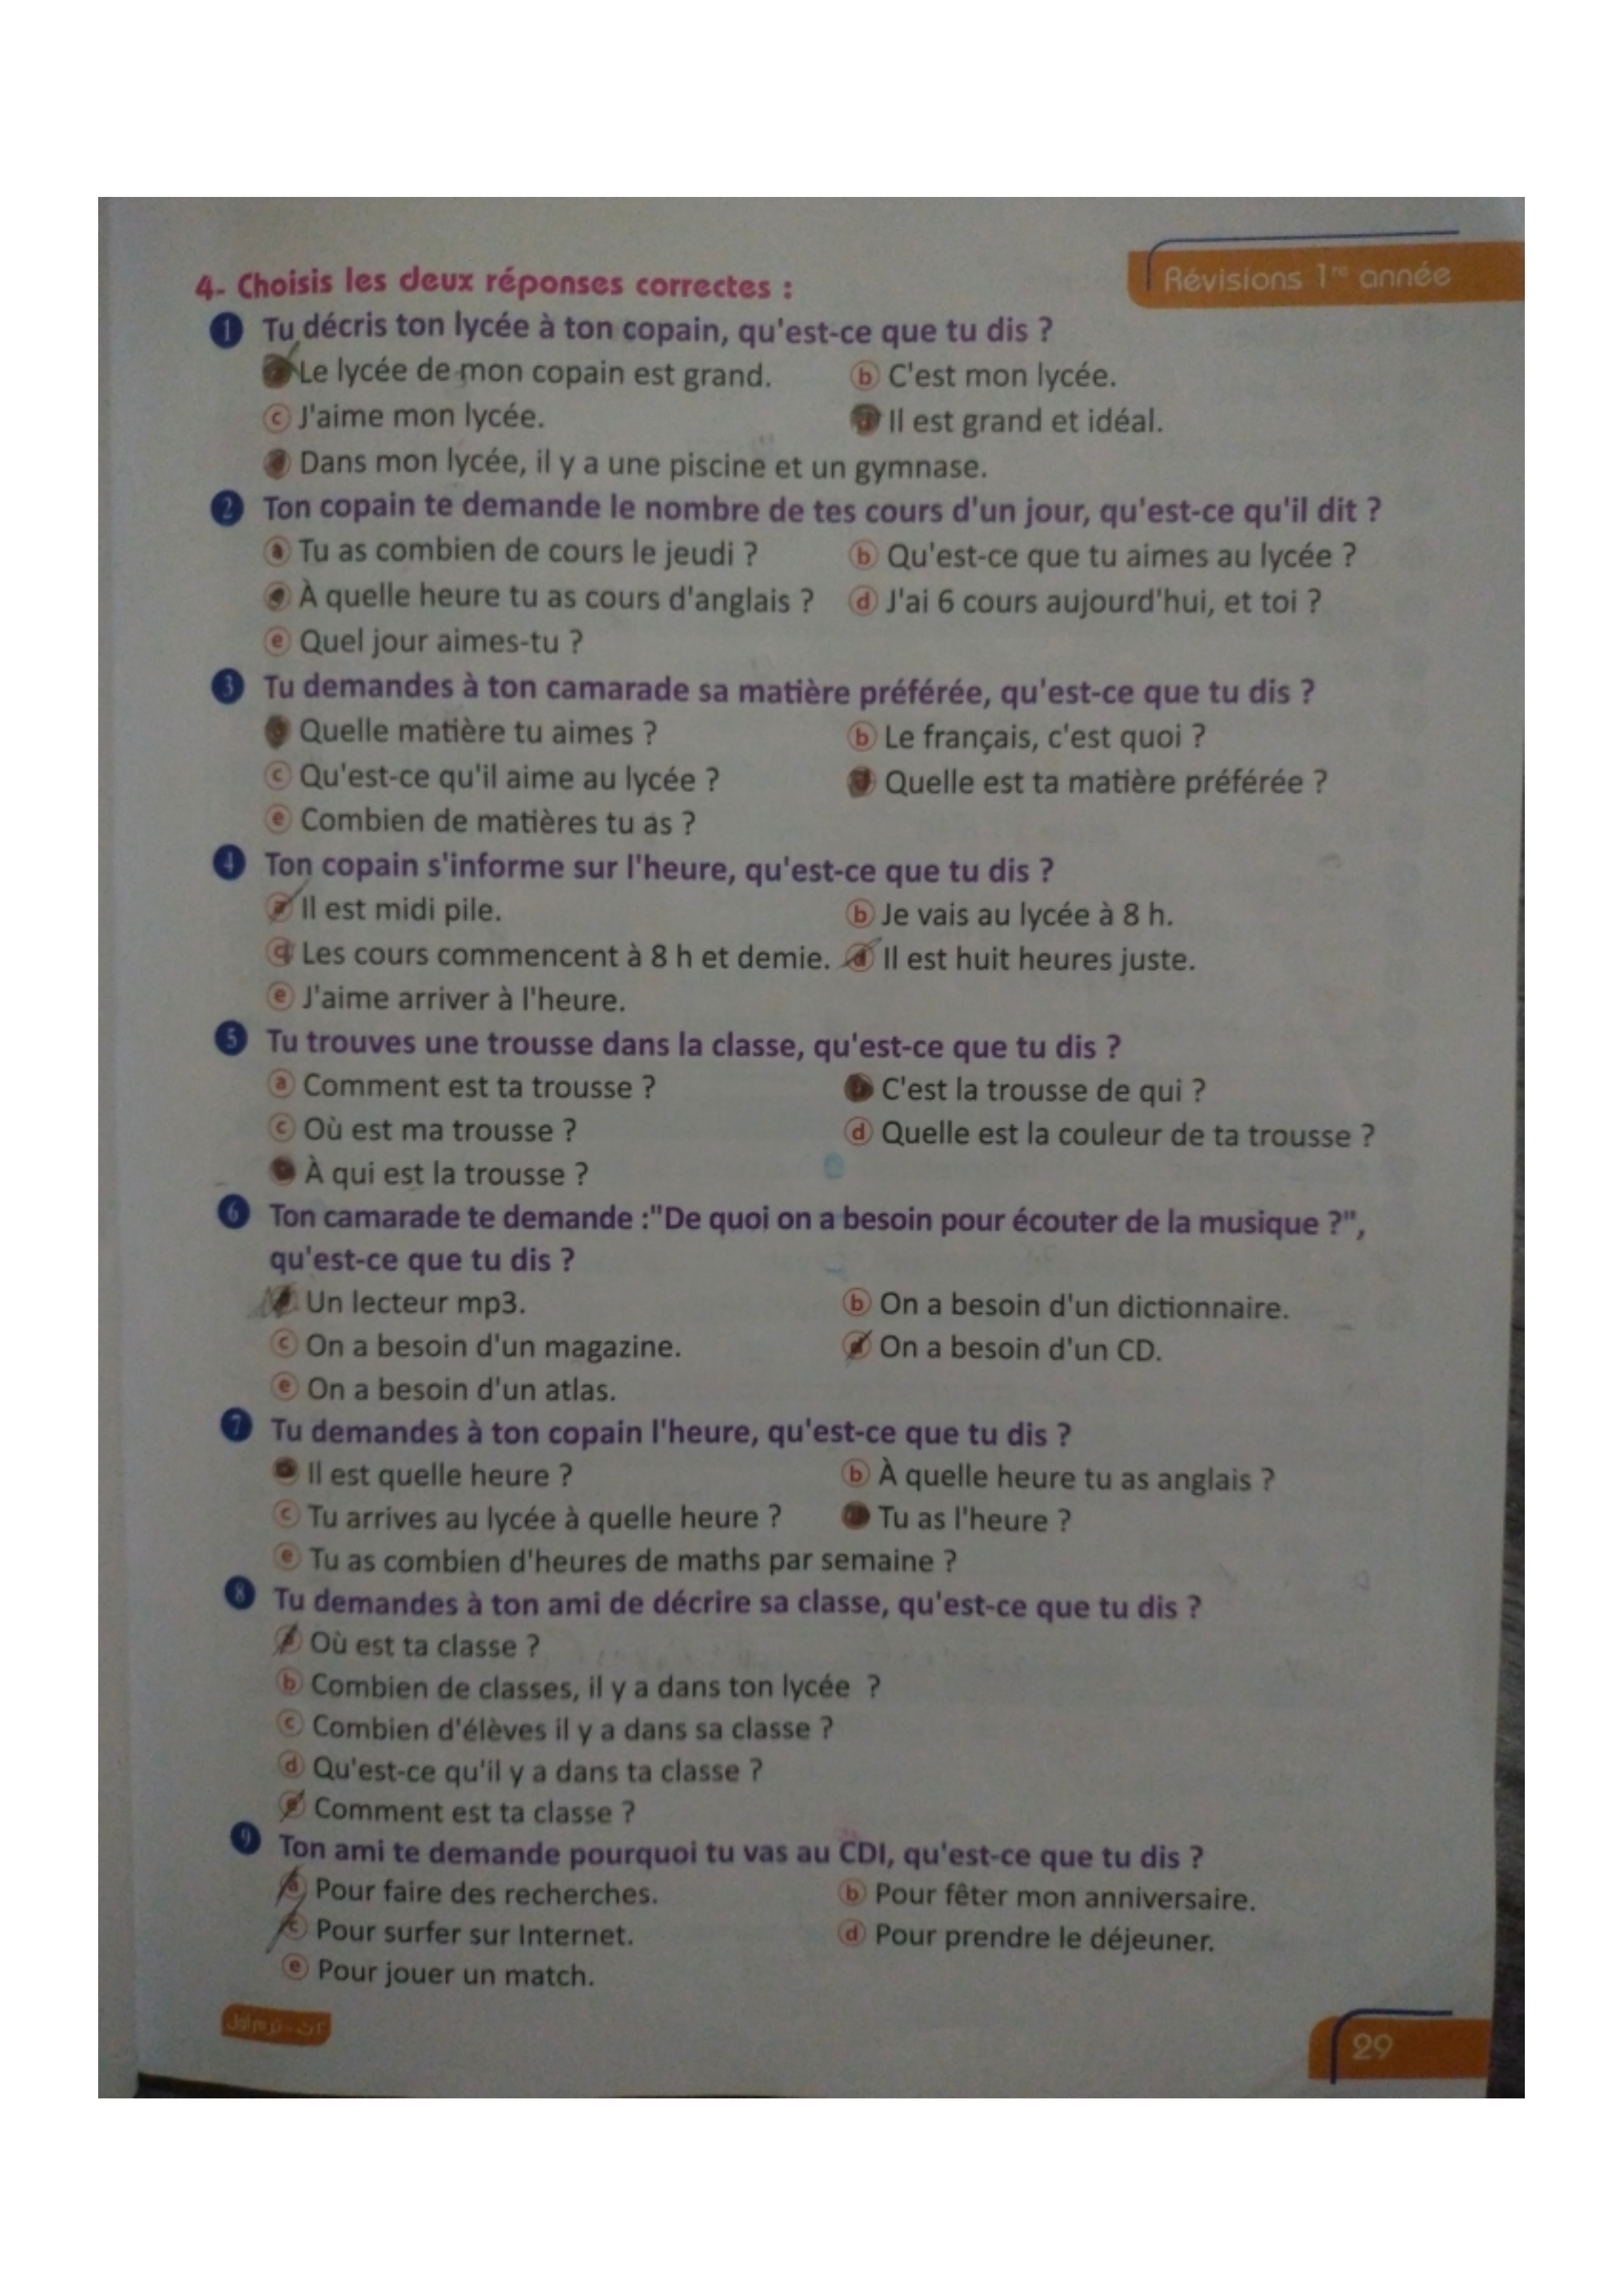 Révisions 1re année
4- Choisis les deux réponses correctes :
1 Tu décris ton lycée à ton copain, qu'est-ce que tu dis ?
Le lycée de mon copain est grand. b C'est mon lycée.
c J'aime mon lycée. d Il est grand et idéal.
Dans mon lycée, il y a une piscine et un gymnase.
2 Ton copain te demande le nombre de tes cours d'un jour, qu'est-ce qu'il dit ?
a Tu as combien de cours le jeudi ? b Qu'est-ce que tu aimes au lycée ?
c À quelle heure tu as cours d'anglais ? d J'ai 6 cours aujourd'hui, et toi ?
e Quel jour aimes-tu ?
3 Tu demandes à ton camarade sa matière préférée, qu'est-ce que tu dis ?
Quelle matière tu aimes ? b Le français, c'est quoi ?
c Qu'est-ce qu'il aime au lycée ? d Quelle est ta matière préférée ?
e Combien de matières tu as ?
4 Ton copain s'informe sur l'heure, qu'est-ce que tu dis ?
a Il est midi pile. b Je vais au lycée à 8 h.
c Les cours commencent à 8 h et demie. d Il est huit heures juste.
e J'aime arriver à l'heure.
5 Tu trouves une trousse dans la classe, qu'est-ce que tu dis ?
a Comment est ta trousse ? C'est la trousse de qui ?
c Où est ma trousse ? d Quelle est la couleur de ta trousse ?
À qui est la trousse ?
6 Ton camarade te demande :"De quoi on a besoin pour écouter de la musique ?",
qu'est-ce que tu dis ?
Un lecteur mp3. b On a besoin d'un dictionnaire.
c On a besoin d'un magazine. d On a besoin d'un CD.
e On a besoin d'un atlas.
7 Tu demandes à ton copain l'heure, qu'est-ce que tu dis ?
Il est quelle heure ? b À quelle heure tu as anglais ?
c Tu arrives au lycée à quelle heure ? Tu as l'heure ?
e Tu as combien d'heures de maths par semaine ?
8 Tu demandes à ton ami de décrire sa classe, qu'est-ce que tu dis ?
a Où est ta classe ?
b Combien de classes, il y a dans ton lycée ?
c Combien d'élèves il y a dans sa classe ?
d Qu'est-ce qu'il y a dans ta classe ?
e Comment est ta classe ?
9 Ton ami te demande pourquoi tu vas au CDI, qu'est-ce que tu dis ?
a Pour faire des recherches. b Pour fêter mon anniversaire.
c Pour surfer sur Internet. d Pour prendre le déjeuner.
e Pour jouer un match.
٢ث - ترم أول
29